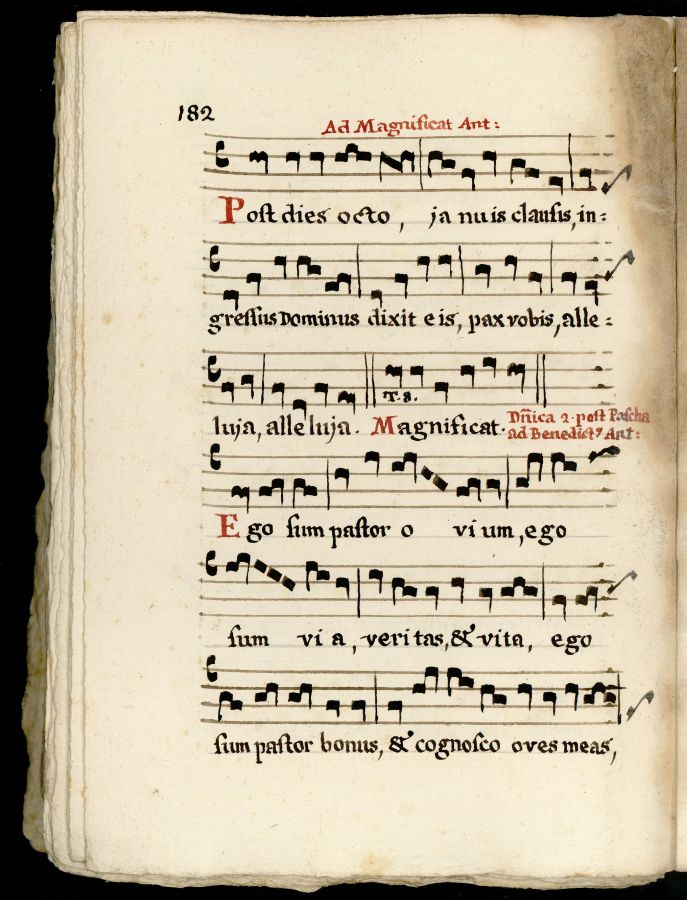 182
Ad Magnificat Ant:
Post dies octo, januis clausis, in:
gressus Dominus dixit eis, pax vobis, alle:
T. 8.
luja, alleluja. Magnificat. Dñica 2. post Pascha
ad Benedict9 Ant:
Ego sum pastor ovium, ego
sum via, veritas, & vita, ego
sum pastor bonus, & cognosco oves meas,